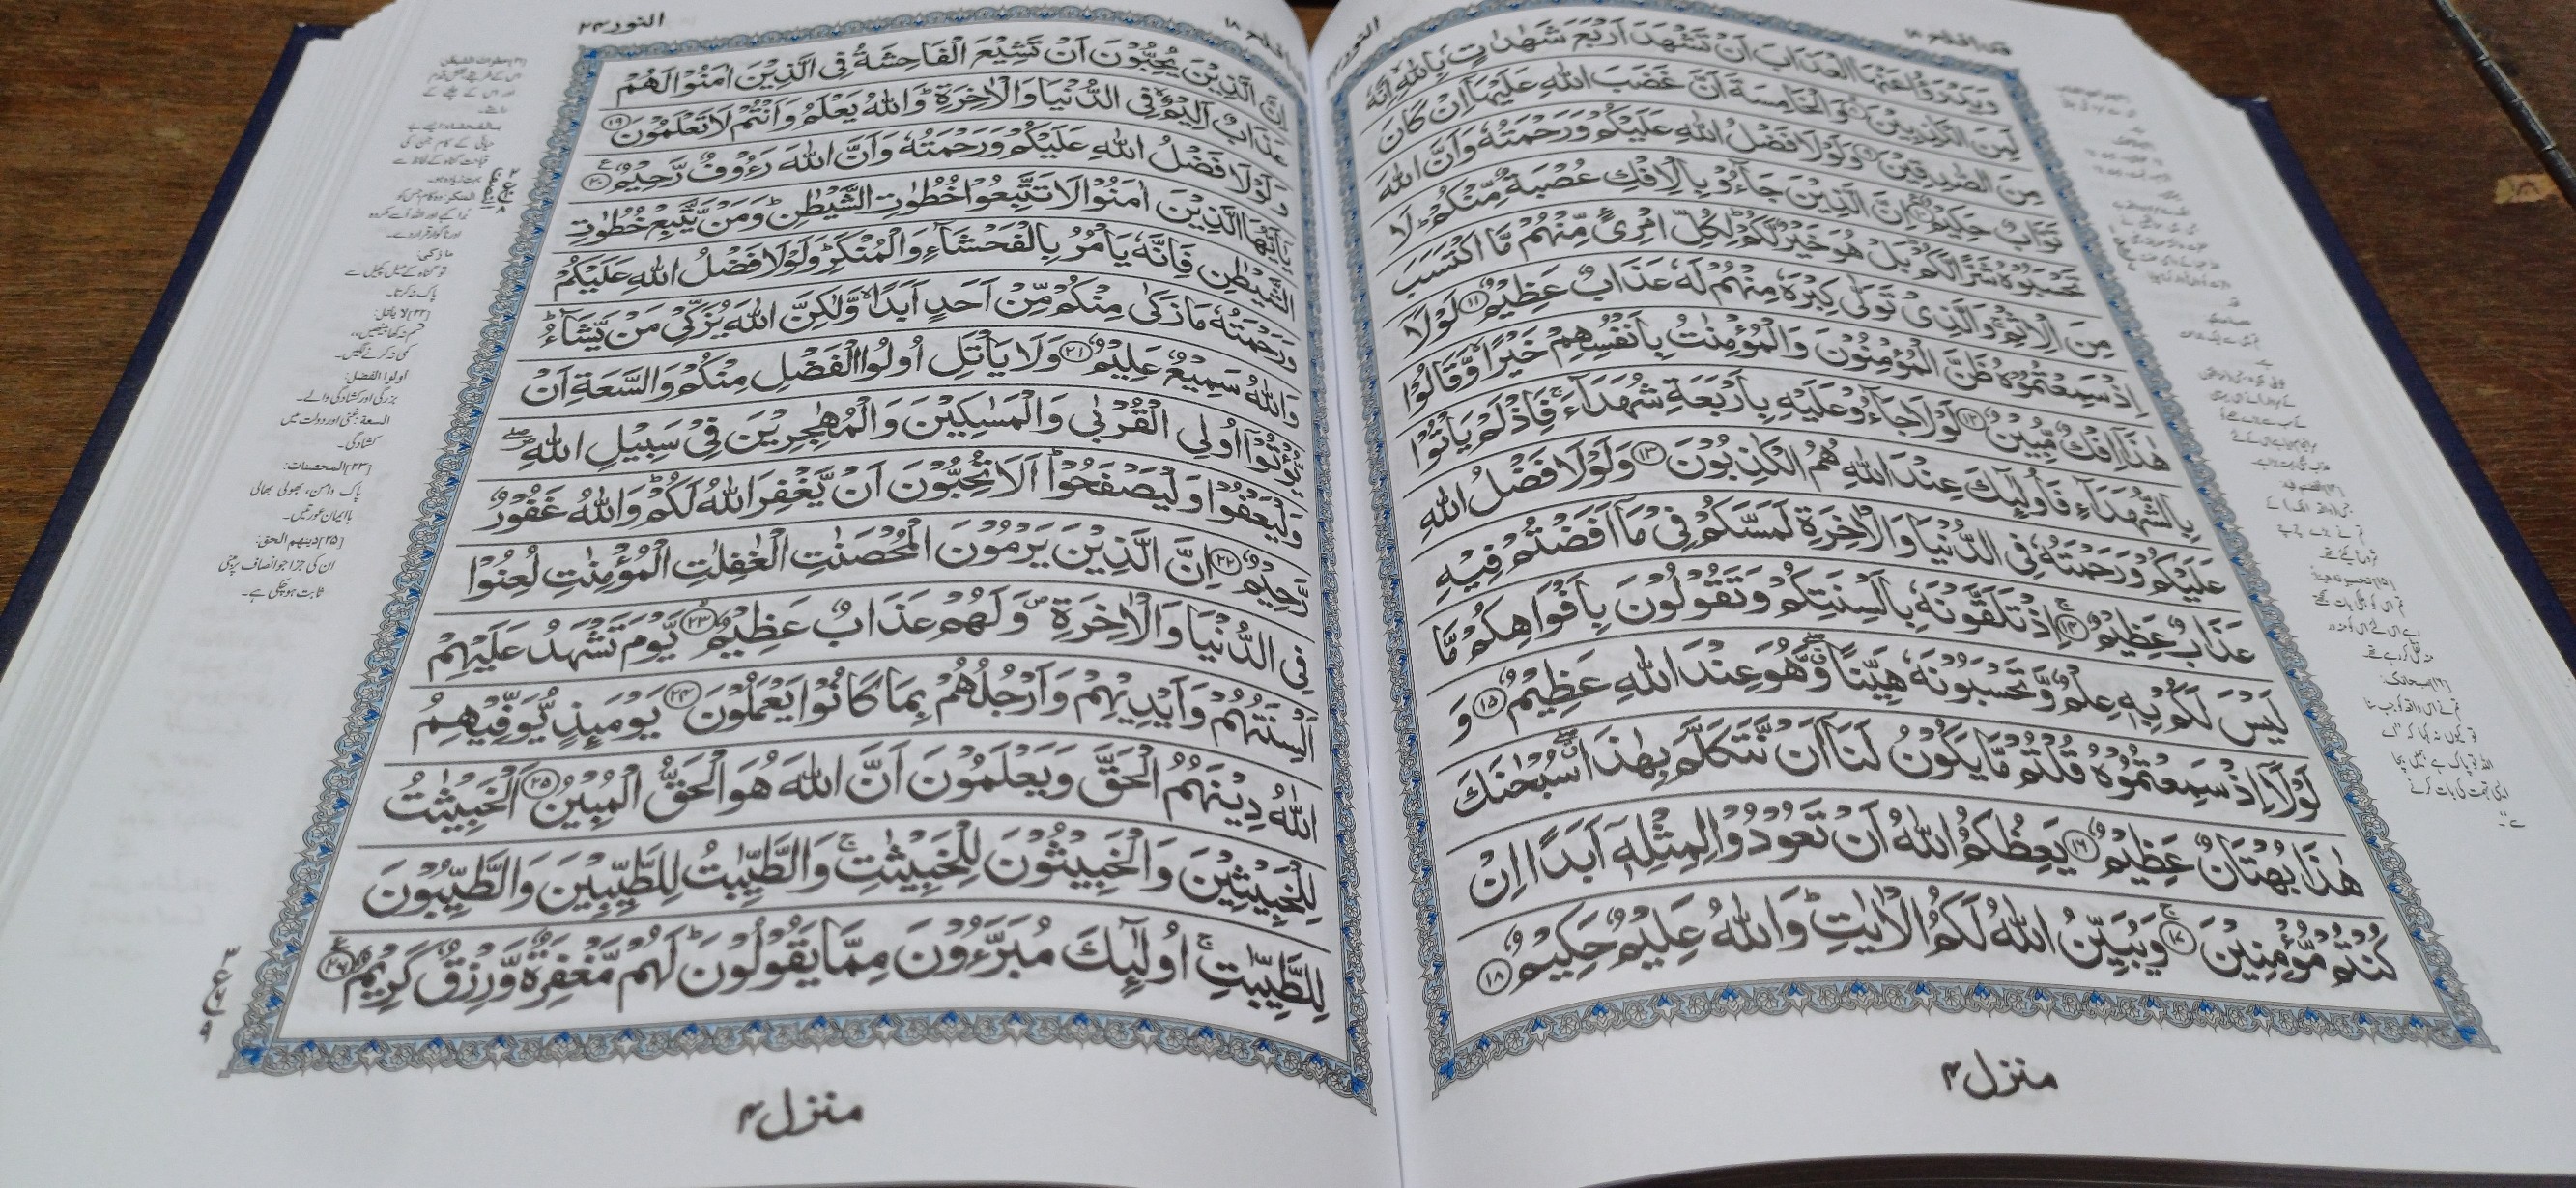 قد افلح ١٨
النور ٢٤
وَيَدْرَؤُا عَنْهَا الْعَذَابَ اَنْ تَشْهَدَ اَرْبَعَ شَهٰدٰتٍۭ بِاللّٰهِ اِنَّهٗ
لَمِنَ الْكٰذِبِيْنَ ۙ۝۸ وَالْخَامِسَةَ اَنَّ غَضَبَ اللّٰهِ عَلَيْهَاۤ اِنْ كَانَ
مِنَ الصّٰدِقِيْنَ ۝۹ وَلَوْلَا فَضْلُ اللّٰهِ عَلَيْكُمْ وَرَحْمَتُهٗ وَاَنَّ اللّٰهَ
تَوَّابٌ حَكِيْمٌ ۝۱۰ اِنَّ الَّذِيْنَ جَآءُوْ بِالْاِفْكِ عُصْبَةٌ مِّنْكُمْ ؕ لَا
تَحْسَبُوْهُ شَرًّا لَّكُمْ ؕ بَلْ هُوَ خَيْرٌ لَّكُمْ ؕ لِكُلِّ امْرِئٍ مِّنْهُمْ مَّا اكْتَسَبَ
مِنَ الْاِثْمِ ۚ وَالَّذِيْ تَوَلّٰى كِبْرَهٗ مِنْهُمْ لَهٗ عَذَابٌ عَظِيْمٌ ۝۱۱ لَوْلَاۤ
اِذْ سَمِعْتُمُوْهُ ظَنَّ الْمُؤْمِنُوْنَ وَالْمُؤْمِنٰتُ بِاَنْفُسِهِمْ خَيْرًا ۙ وَّقَالُوْا
هٰذَاۤ اِفْكٌ مُّبِيْنٌ ۝۱۲ لَوْلَا جَآءُوْ عَلَيْهِ بِاَرْبَعَةِ شُهَدَآءَ ۚ فَاِذْ لَمْ يَاْتُوْا
بِالشُّهَدَآءِ فَاُولٰٓئِكَ عِنْدَ اللّٰهِ هُمُ الْكٰذِبُوْنَ ۝۱۳ وَلَوْلَا فَضْلُ اللّٰهِ
عَلَيْكُمْ وَرَحْمَتُهٗ فِي الدُّنْيَا وَالْاٰخِرَةِ لَمَسَّكُمْ فِيْ مَاۤ اَفَضْتُمْ فِيْهِ
عَذَابٌ عَظِيْمٌ ۚۖ۝۱۴ اِذْ تَلَقَّوْنَهٗ بِاَلْسِنَتِكُمْ وَتَقُوْلُوْنَ بِاَفْوَاهِكُمْ مَّا
لَيْسَ لَكُمْ بِهٖ عِلْمٌ وَّتَحْسَبُوْنَهٗ هَيِّنًا ۖۗ وَّهُوَ عِنْدَ اللّٰهِ عَظِيْمٌ ۝۱۵ وَ
لَوْلَاۤ اِذْ سَمِعْتُمُوْهُ قُلْتُمْ مَّا يَكُوْنُ لَنَاۤ اَنْ نَّتَكَلَّمَ بِهٰذَا ۖۗ سُبْحٰنَكَ
هٰذَا بُهْتَانٌ عَظِيْمٌ ۝۱۶ يَعِظُكُمُ اللّٰهُ اَنْ تَعُوْدُوْا لِمِثْلِهٖۤ اَبَدًا اِنْ
كُنْتُمْ مُّؤْمِنِيْنَ ۚ۝۱۷ وَيُبَيِّنُ اللّٰهُ لَكُمُ الْاٰيٰتِ ؕ وَاللّٰهُ عَلِيْمٌ حَكِيْمٌ ۝۱۸
منزل ٤
قد افلح ١٨
النور ٢٤
اِنَّ الَّذِيْنَ يُحِبُّوْنَ اَنْ تَشِيْعَ الْفَاحِشَةُ فِي الَّذِيْنَ اٰمَنُوْا لَهُمْ
عَذَابٌ اَلِيْمٌ ۙ فِي الدُّنْيَا وَالْاٰخِرَةِ ؕ وَاللّٰهُ يَعْلَمُ وَاَنْتُمْ لَا تَعْلَمُوْنَ ۝۱۹
وَلَوْلَا فَضْلُ اللّٰهِ عَلَيْكُمْ وَرَحْمَتُهٗ وَاَنَّ اللّٰهَ رَءُوْفٌ رَّحِيْمٌ ۝۲۰
يٰۤاَيُّهَا الَّذِيْنَ اٰمَنُوْا لَا تَتَّبِعُوْا خُطُوٰتِ الشَّيْطٰنِ ؕ وَمَنْ يَّتَّبِعْ خُطُوٰتِ
الشَّيْطٰنِ فَاِنَّهٗ يَاْمُرُ بِالْفَحْشَآءِ وَالْمُنْكَرِ ؕ وَلَوْلَا فَضْلُ اللّٰهِ عَلَيْكُمْ
وَرَحْمَتُهٗ مَا زَكٰى مِنْكُمْ مِّنْ اَحَدٍ اَبَدًا ۙ وَّلٰكِنَّ اللّٰهَ يُزَكِّيْ مَنْ يَّشَآءُ ؕ
وَاللّٰهُ سَمِيْعٌ عَلِيْمٌ ۝۲۱ وَلَا يَاْتَلِ اُولُوا الْفَضْلِ مِنْكُمْ وَالسَّعَةِ اَنْ
يُّؤْتُوْۤا اُولِي الْقُرْبٰى وَالْمَسٰكِيْنَ وَالْمُهٰجِرِيْنَ فِيْ سَبِيْلِ اللّٰهِ ۪ۖ
وَلْيَعْفُوْا وَلْيَصْفَحُوْا ؕ اَلَا تُحِبُّوْنَ اَنْ يَّغْفِرَ اللّٰهُ لَكُمْ ؕ وَاللّٰهُ غَفُوْرٌ
رَّحِيْمٌ ۝۲۲ اِنَّ الَّذِيْنَ يَرْمُوْنَ الْمُحْصَنٰتِ الْغٰفِلٰتِ الْمُؤْمِنٰتِ لُعِنُوْا
فِي الدُّنْيَا وَالْاٰخِرَةِ ۪ وَلَهُمْ عَذَابٌ عَظِيْمٌ ۙ۝۲۳ يَّوْمَ تَشْهَدُ عَلَيْهِمْ
اَلْسِنَتُهُمْ وَاَيْدِيْهِمْ وَاَرْجُلُهُمْ بِمَا كَانُوْا يَعْمَلُوْنَ ۝۲۴ يَوْمَئِذٍ يُّوَفِّيْهِمُ
اللّٰهُ دِيْنَهُمُ الْحَقَّ وَيَعْلَمُوْنَ اَنَّ اللّٰهَ هُوَ الْحَقُّ الْمُبِيْنُ ۝۲۵ اَلْخَبِيْثٰتُ
لِلْخَبِيْثِيْنَ وَالْخَبِيْثُوْنَ لِلْخَبِيْثٰتِ ۚ وَالطَّيِّبٰتُ لِلطَّيِّبِيْنَ وَالطَّيِّبُوْنَ
لِلطَّيِّبٰتِ ۚ اُولٰٓئِكَ مُبَرَّءُوْنَ مِمَّا يَقُوْلُوْنَ ؕ لَهُمْ مَّغْفِرَةٌ وَّرِزْقٌ كَرِيْمٌ ۝۲۶
ما زكى:
تو گناہ کے میل کچیل سے
پاک نہ کرتا۔
[۲۲] لا ياتل:
قسم نہ کھا بیٹھیں،،
کمی نہ کرنے لگیں۔
اولوا الفضل:
بزرگی اور کشادگی والے۔
السعة: غنی اور دولت میں
کشادگی۔
[۲۳] المحصنات:
پاک دامن، بھولی بھالی
باایمان عورتیں۔
[۲۵] دينهم الحق:
ان کی جزا جو انصاف پر مبنی
ثابت ہوچکی ہے۔
منزل ٤